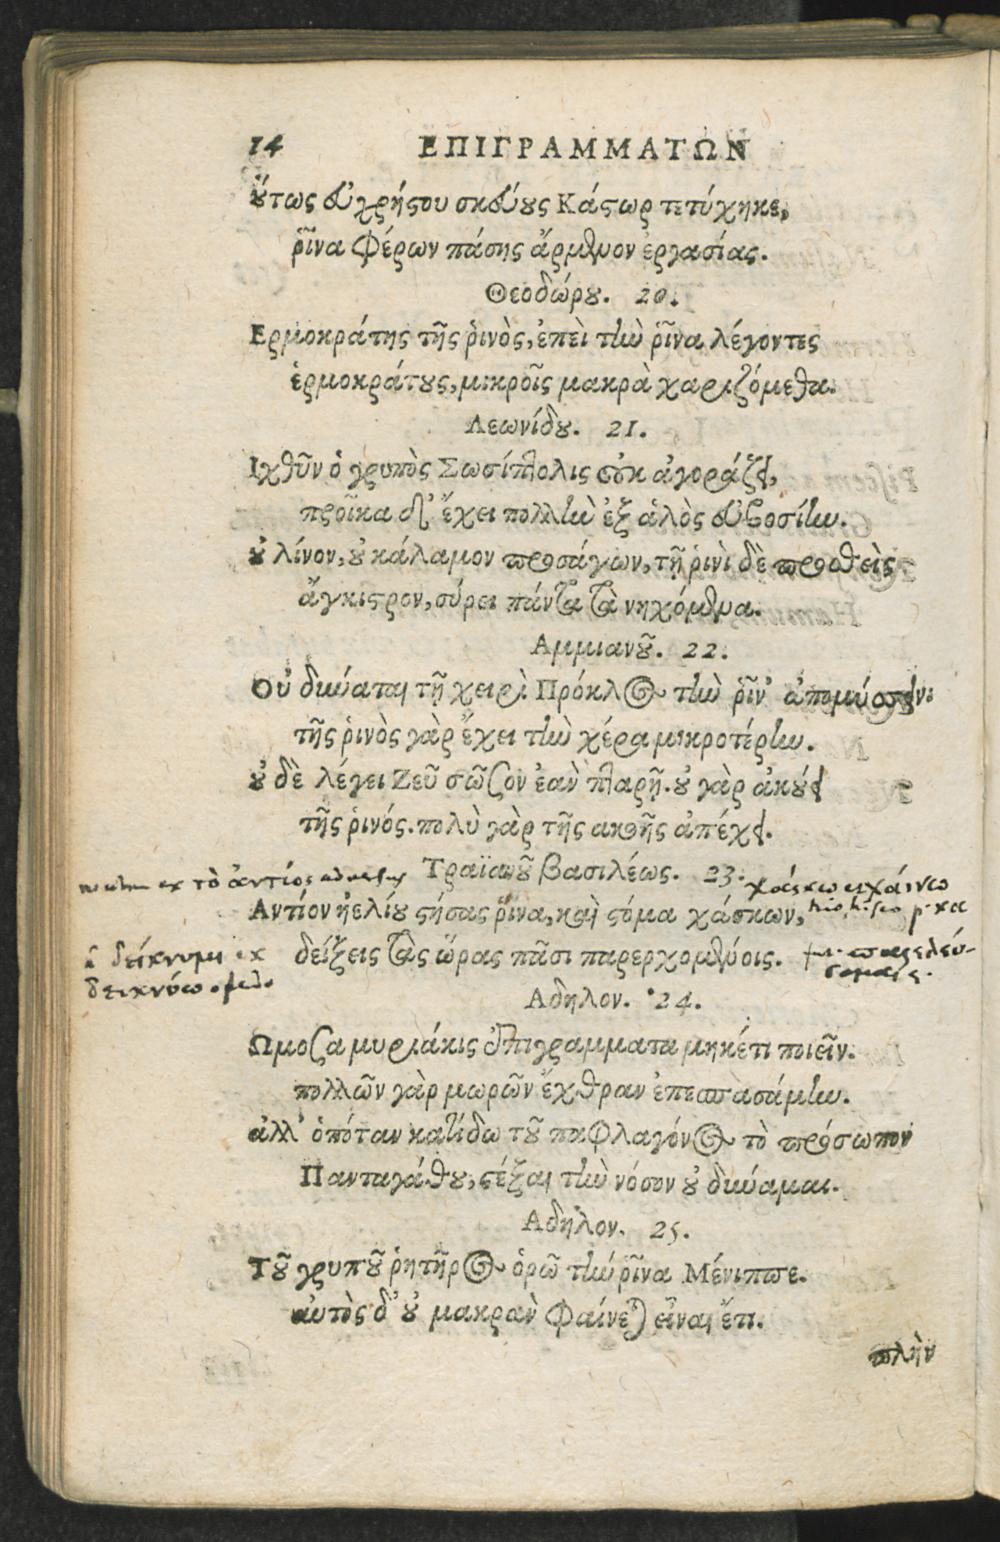 14 ΕΠΙΓΡΑΜΜΑΤΩΝ
οὕτως εὐχρήστου σκεύους Κάστωρ τετύχηκε,
ῥῖνα φέρων πάσης ἄρμενον ἐργασίας.
Θεοδώρου. 20.
Ερμοκράτης τῆς ῥινὸς, ἐπεὶ τὴν ῥῖνα λέγοντες
ἑρμοκράτους, μικροῖς μακρὰ χαριζόμεθα.
Λεωνίδου. 21.
Ιχθῦν ὁ γρυπὸς Σωσίπολις οὐκ ἀγοράζει,
προῖκα δ' ἔχει πολλὴν ἐξ ἁλὸς εὐβοσίην.
οὐ λίνον, οὐ κάλαμον προσάγων, τῇ ῥινὶ δὲ προσθεὶς
ἄγκιστρον, σύρει πάντα τὰ νηχόμενα.
Αμμιανοῦ. 22.
Οὐ δύναται τῇ χειρὶ Πρόκλος τὴν ῥῖν' ἀπομύσσειν·
τῆς ῥινὸς γὰρ ἔχει τὴν χέρα μικροτέρην.
οὐ δὲ λέγει Ζεῦ σῶσον ἐὰν πταρῇ. οὐ γὰρ ἀκούει
τῆς ῥινός. πολὺ γὰρ τῆς ακοῆς ἀπέχει.
Τραϊανοῦ βασιλέως. 23.
ἐκ τὸ ἀντίος
χάσκω χαίνω
Αντίον ἠελίου στήσας ῥῖνα, καὶ στόμα χάσκων,
hio, hisco
δείξεις τὰς ὥρας πᾶσι παρερχομένοις.
δείκνυμι ex
δεικνύω
Αδηλον. 24.
Ωμοσα μυριάκις ἐπιγράμματα μηκέτι ποιεῖν.
πολλῶν γὰρ μωρῶν ἔχθραν ἐπεσπασάμην.
ἀλλ' ὁπόταν κατίδω τοῦ παφλαγόνος τὸ πρόσωπον
Πανταγάθου, στέξαι τὴν νόσον οὐ δύναμαι.
Αδηλον. 25.
Τοῦ γρυποῦ ῥητῆρος ὁρῶ τὴν ῥῖνα Μένιππε.
αὐτὸς δ' οὐ μακρὰν φαίνεται εἶναι ἔτι.
πλὴν